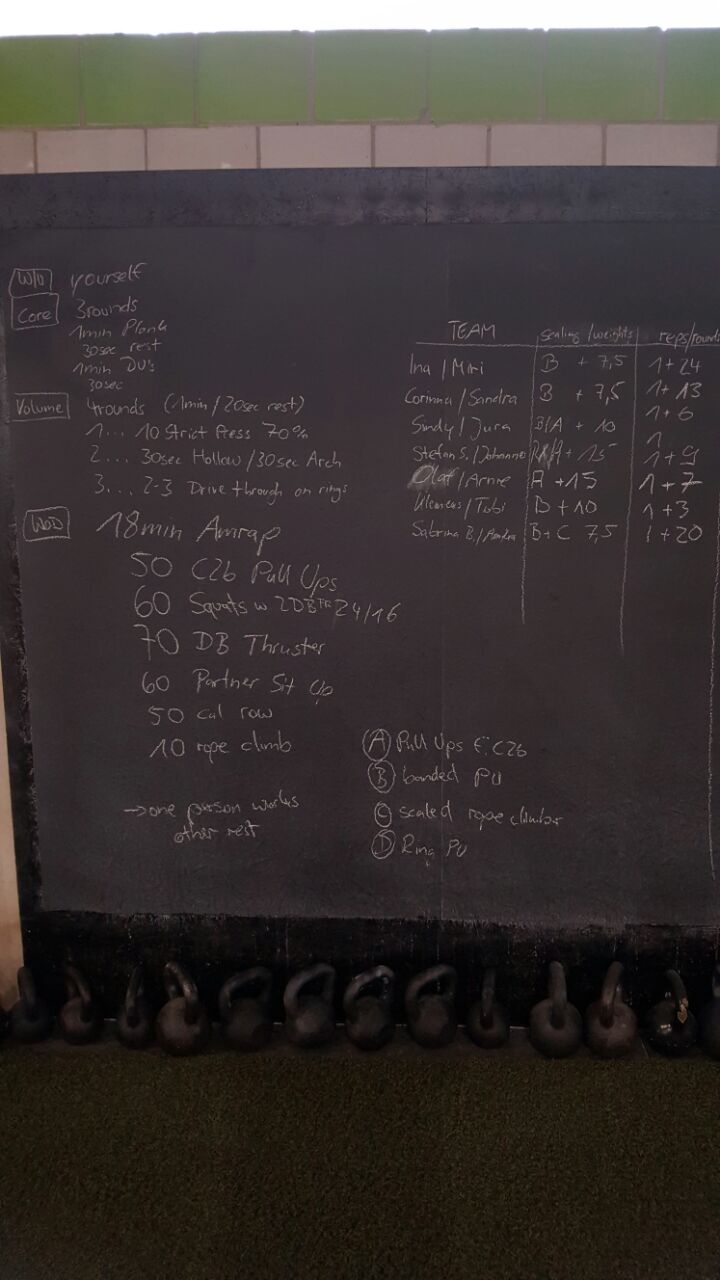 W/U yourself
Core 3rounds
1min Plank
30sec rest
1min DU's
30sec
Volume 4rounds (1min/20sec rest)
1... 10 Strict Press 70%
2... 30sec Hollow/30sec Arch
3... 2-3 Drive through on rings
WoD 18min Amrap
50 C2b Pull Ups
60 Squats w 2DB 24/16
70 DB Thruster
60 Partner Sit Up
50 cal row
10 rope climb
→ one person works
other rest
TEAM scaling/weights reps/rounds
Ina/Miri B + 7,5 1+24
Corinna/Sandra B + 7,5 1+13
Sindy/Jura B/A + 10 1+6
Stefan S./Johannes A + 15 1
1+9
Olaf/Arne A +15 1+7
Klemens/Tobi B +10 1+3
Sabrina B./ B+C 7,5 1+20
A Pull Ups C2b
B banded PU
C scaled rope climber
D Ring PU